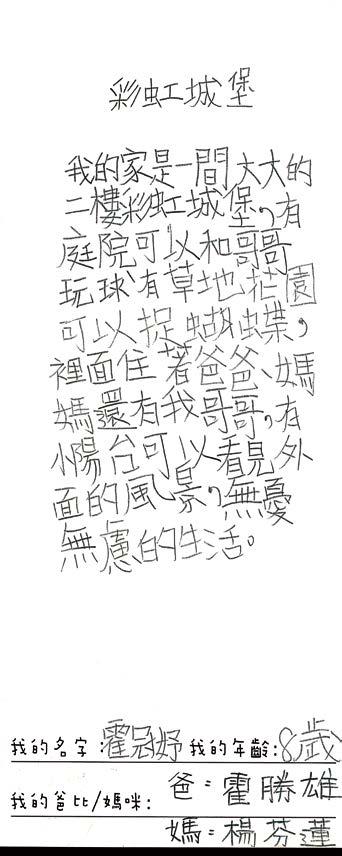 彩虹城堡
我的家是一間大大的
二樓彩虹城堡，有
庭院可以和哥哥
玩球、有草地花園
可以捉蝴蝶，
裡面住著爸爸、媽
媽還有我哥哥，有
小陽台可以看見外
面的風景，無憂
無慮的生活。
我的名字：霍冠妤 我的年齡：8歲
我的爸比/媽咪：爸：霍勝雄
媽：楊芬蓮